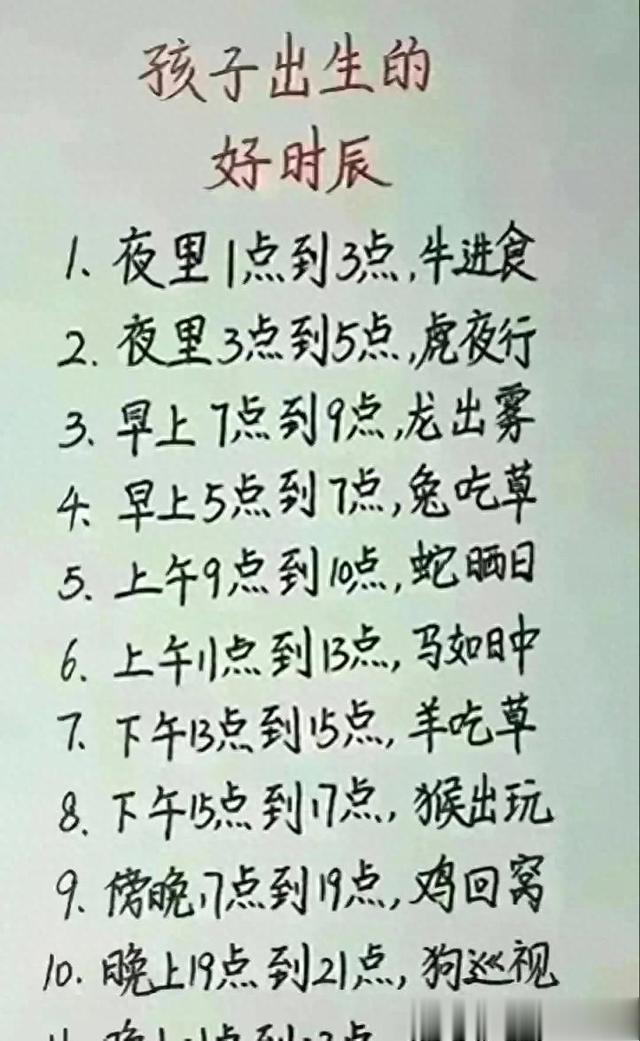 孩子出生的
好时辰
1. 夜里1点到3点,牛进食
2. 夜里3点到5点,虎夜行
3. 早上7点到9点,龙出雾
4. 早上5点到7点,兔吃草
5. 上午9点到10点,蛇晒日
6. 上午11点到13点,马如日中
7. 下午13点到15点,羊吃草
8. 下午15点到17点,猴出玩
9. 傍晚17点到19点,鸡回窝
10. 晚上19点到21点,狗巡视